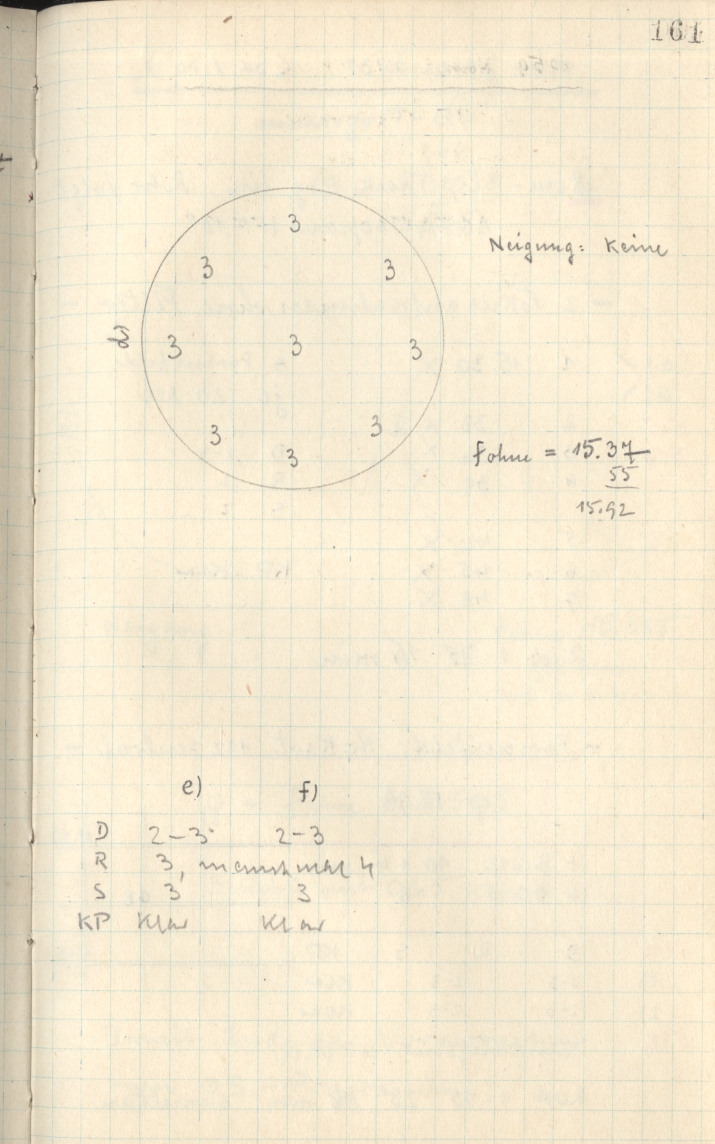 161
3
3 3
Neigung: Keine
3 3 3
3 3
3
f ohne = 15.37
55
15.92
e) f)
D 2-3 2-3
R 3, manchmal 4
S 3 3
KP Klar Klar